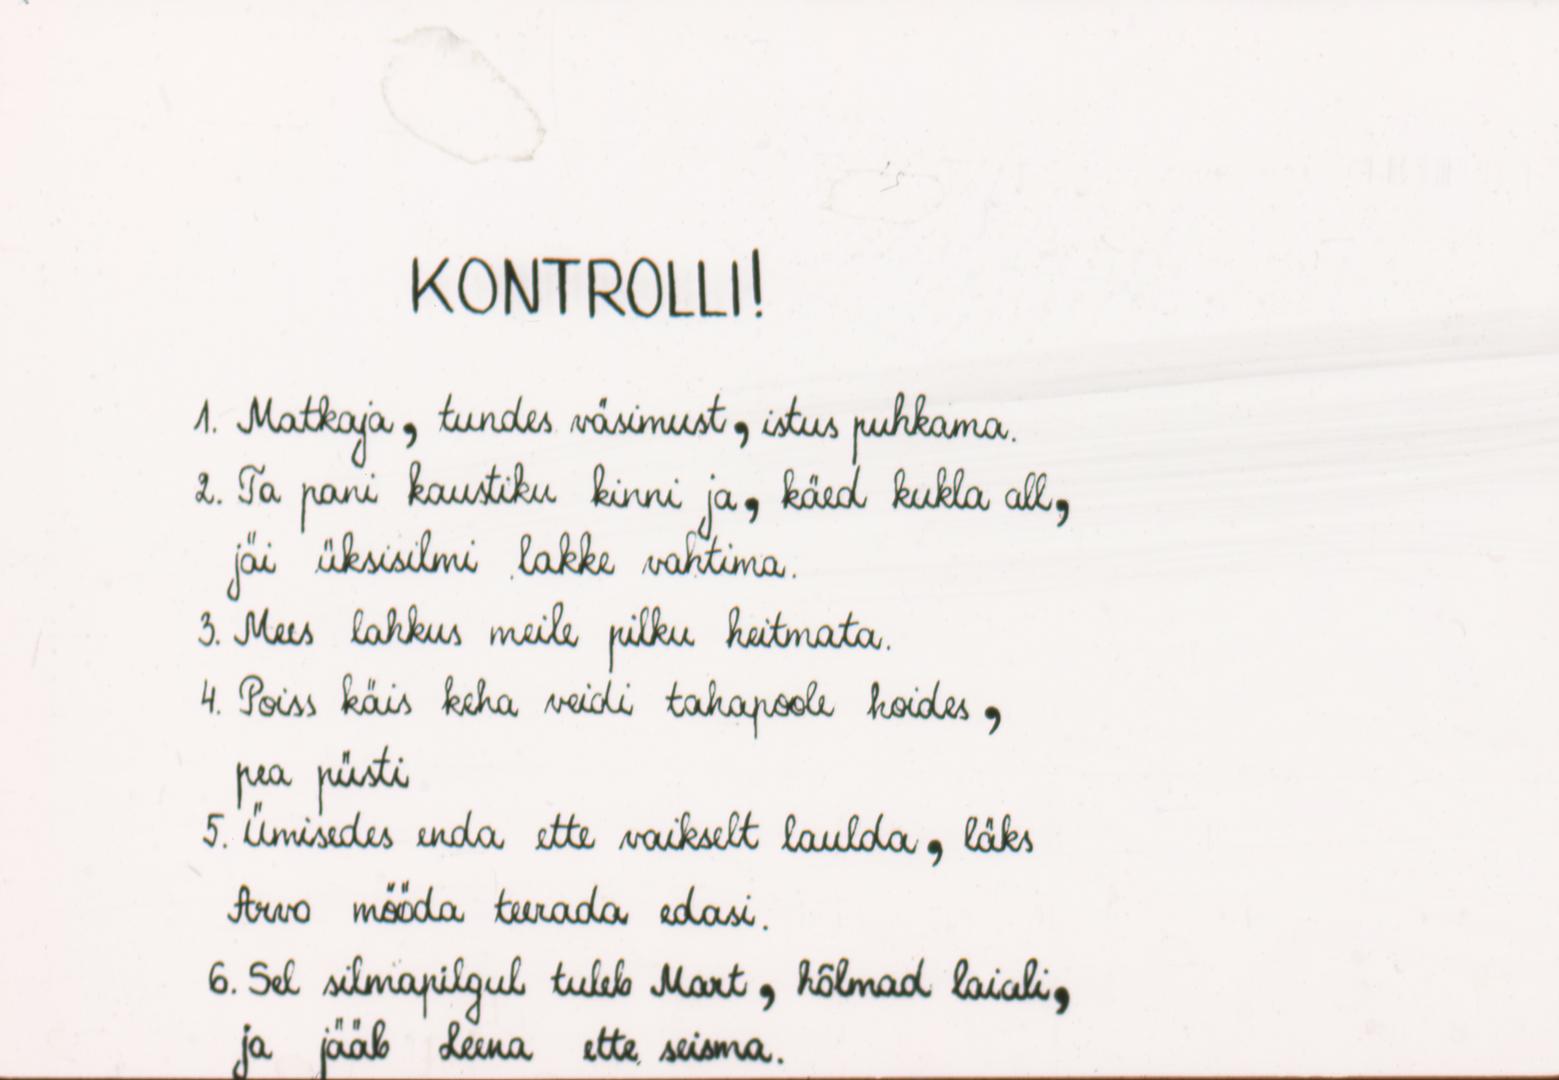 KONTROLLI!
1. Matkaja, tundes väsimust, istus puhkama.
2. Ta pani kaustiku kinni ja, käed kukla all,
jäi üksisilmi lakke vahtima.
3. Mees lahkus meile pilku heitmata.
4. Poiss käis keha veidi tahapoole hoides,
pea püsti
5. Ümisedes enda ette vaikselt laulda, läks
Arvo mööda teerada edasi.
6. Sel silmapilgul tuleb Mart, hõlmad laiali,
ja jääb Leena ette seisma.